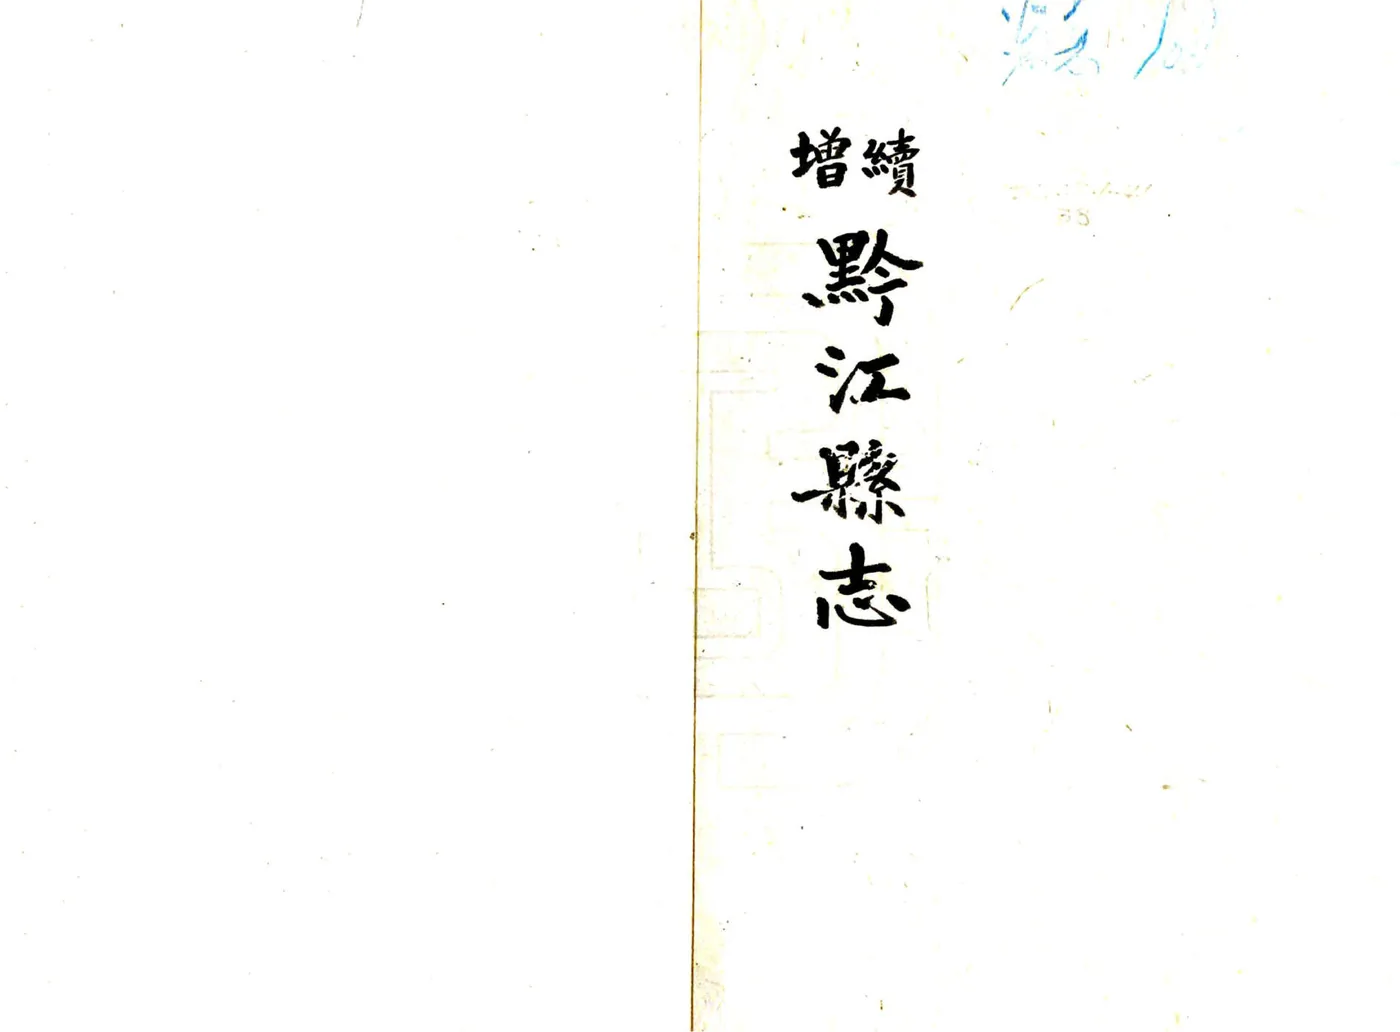 續增
黔江縣志